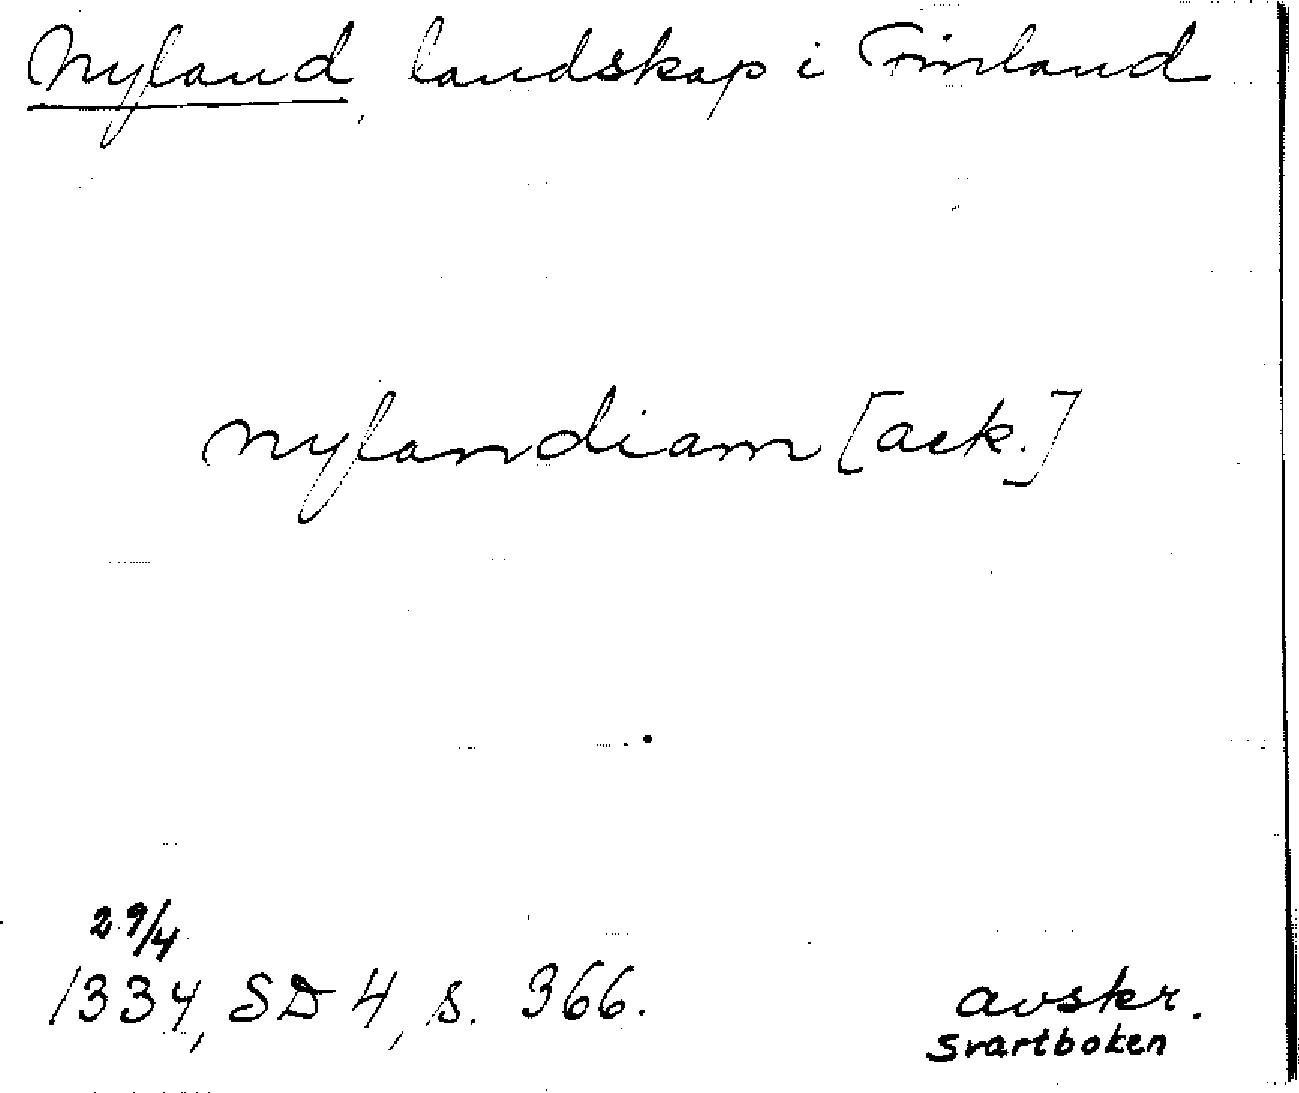 Nyland, landskap i Finland
nylandiam [ack.]
29/4
1334, SD 4, s. 366.
avskr.
Svartboken